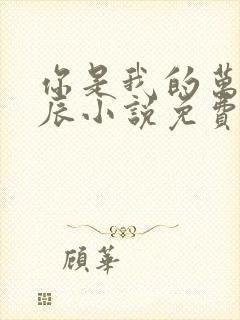 你是我的萬
辰小說免費
顧華